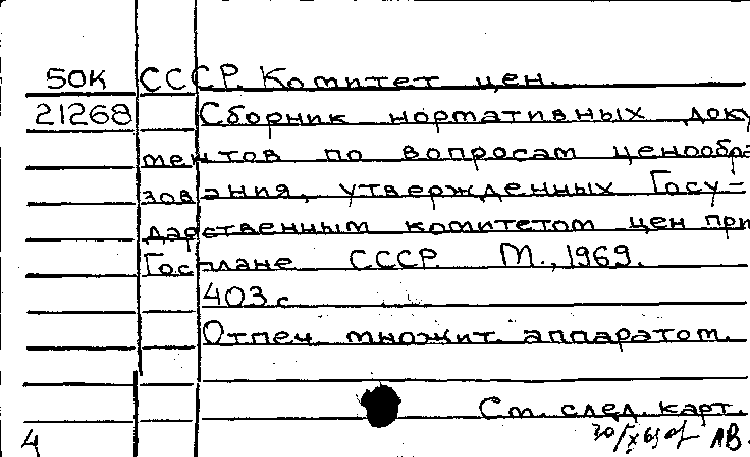 50К СССР. Комитет цен.
21268 Сборник нормативных доку
ментов по вопросам ценообра
зования, утвержденных Госу-
дарственным комитетом цен при
Госплане СССР. М., 1969.
403 с
Отпеч. множит. аппаратом.
См. след. карт.
4 ЛВ.